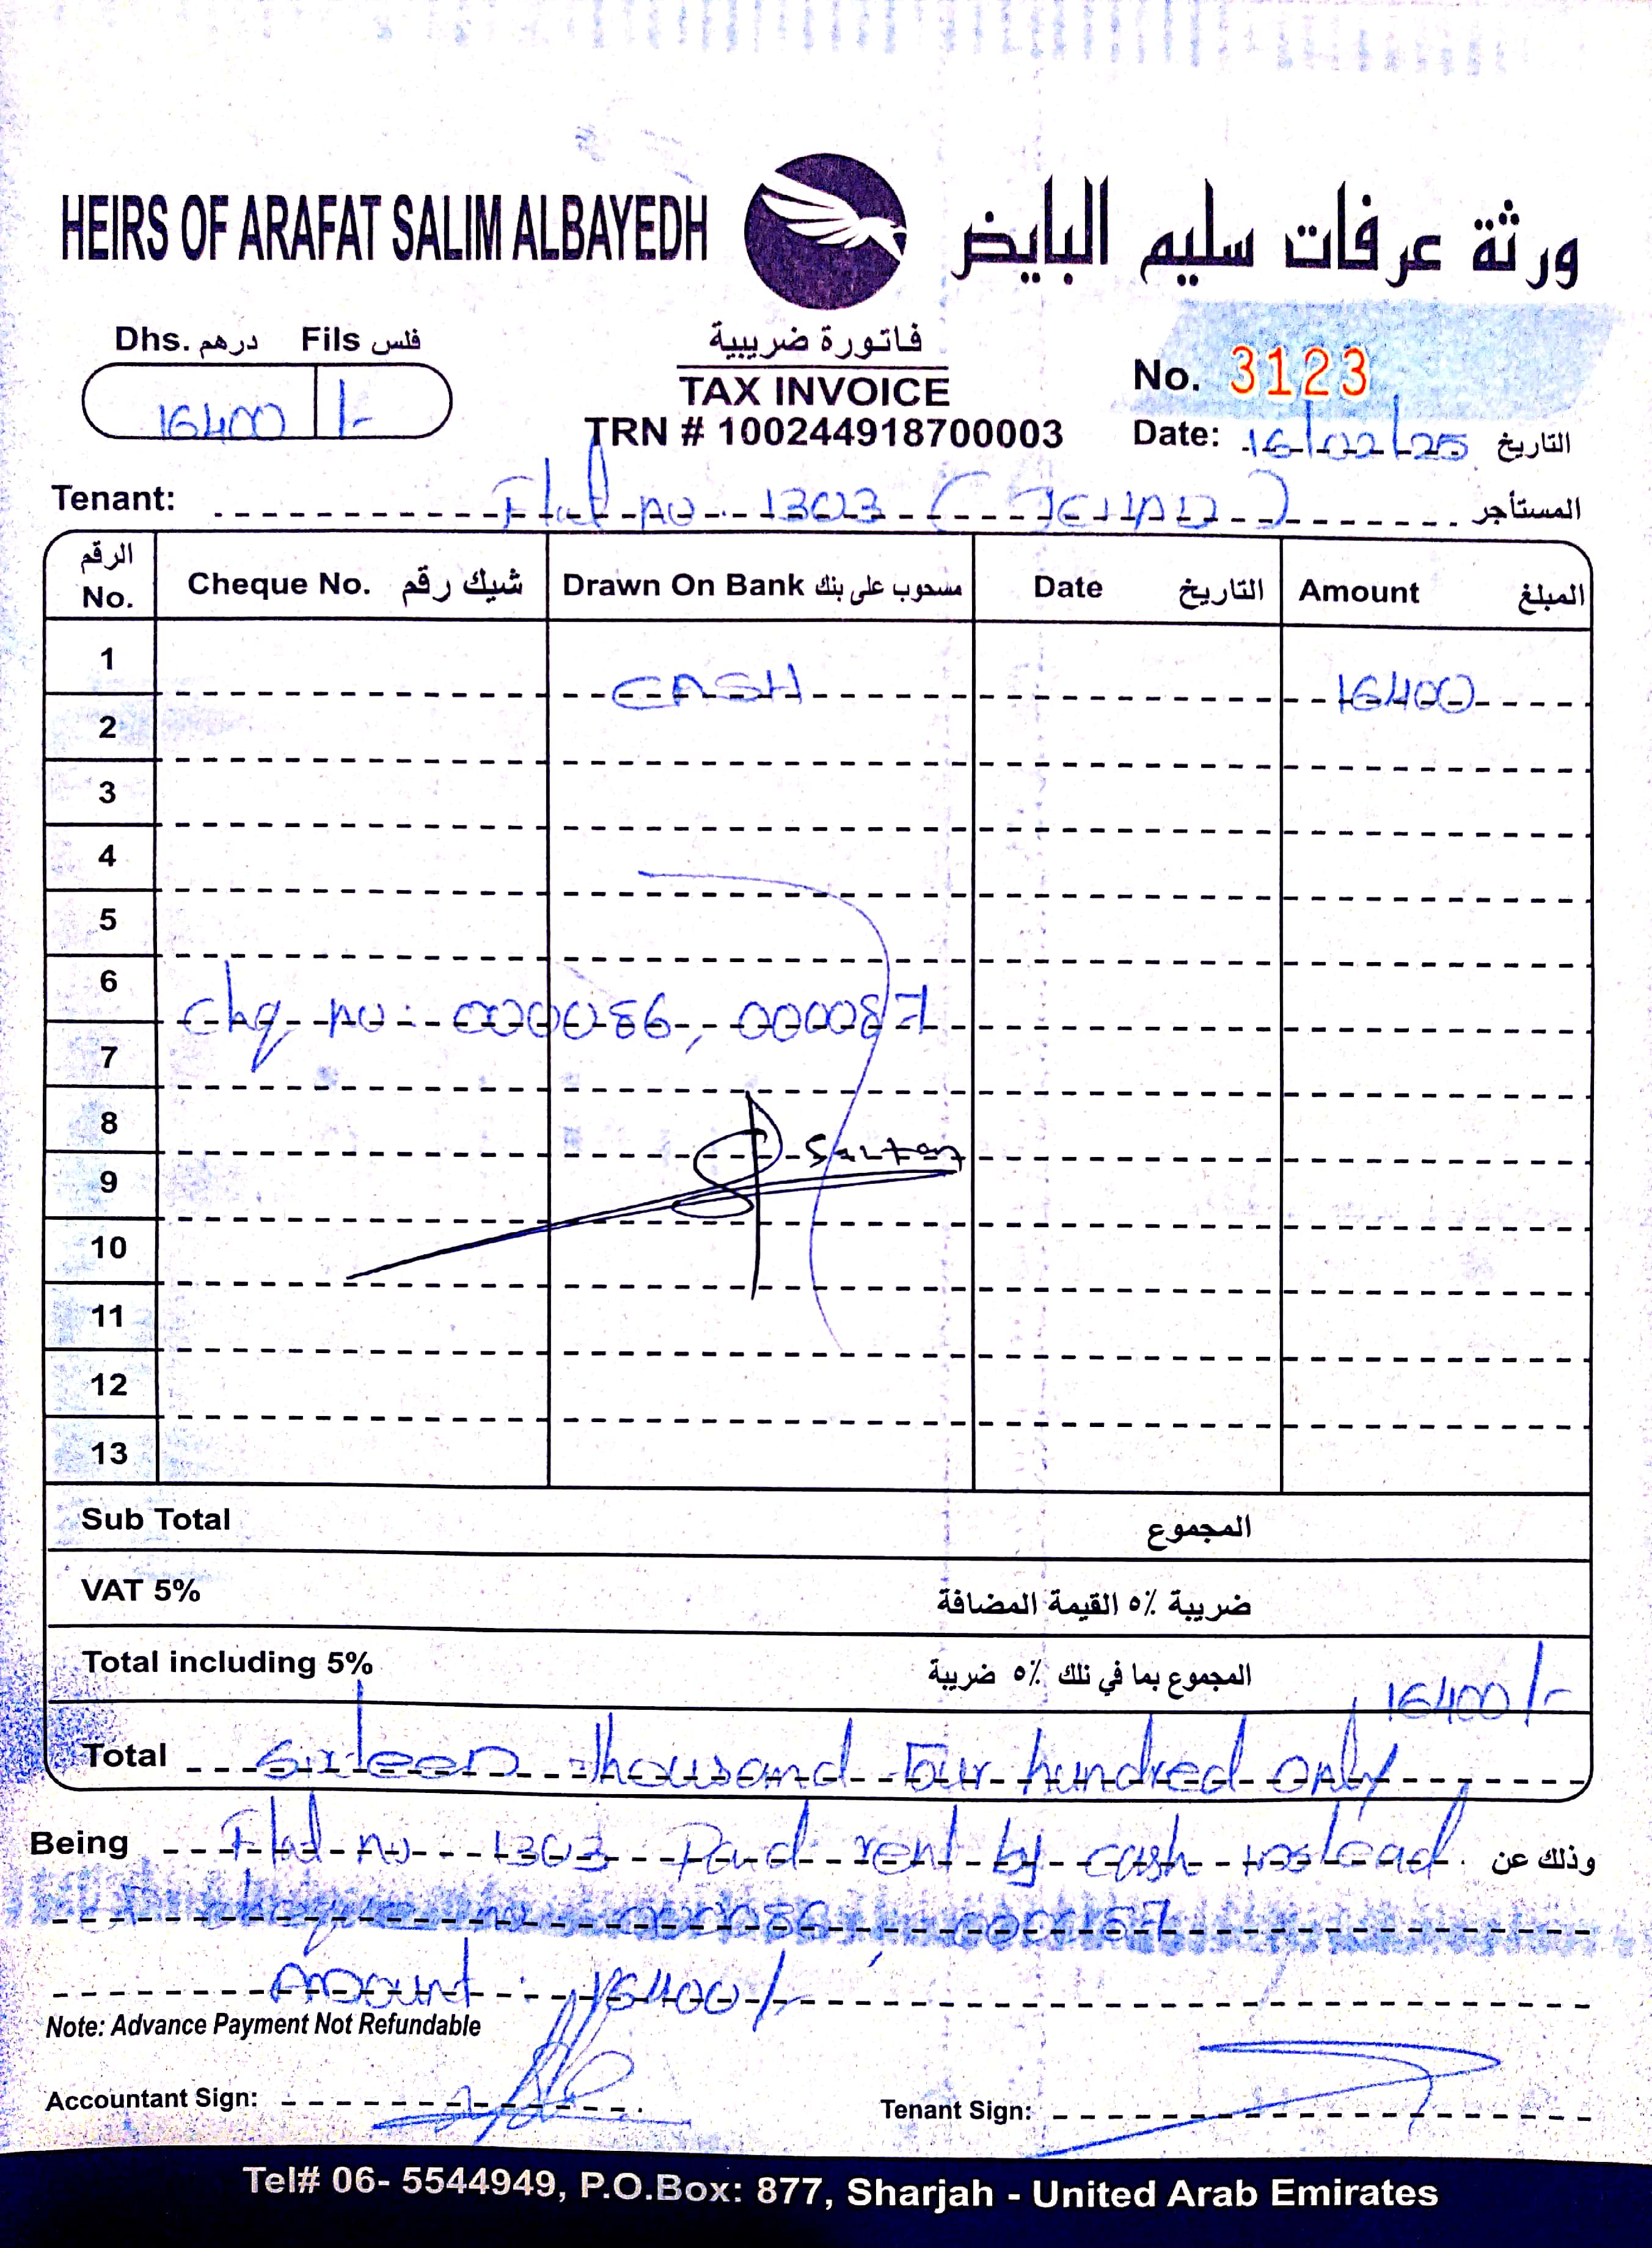 HEIRS OF ARAFAT SALIM ALBAYEDH
ورثة عرفات سليم البايض
Dhs. درهم Fils فلس
16400 /-
فاتورة ضريبية
TAX INVOICE
TRN # 100244918700003
No. 3123
Date: 16/02/25 التاريخ
Tenant: Flat no. 1303 (JEHAD) المستأجر
الرقم No. Cheque No. شيك رقم Drawn On Bank مسحوب على بنك Date التاريخ Amount المبلغ
1 CASH 16400
2
3
4
5
6 chq no: 000086, 000087
7
8
9
10
11
12
13
Sub Total المجموع
VAT 5% ضريبة ٥٪ القيمة المضافة
Total including 5% المجموع بما في ذلك ٥٪ ضريبة 16400/-
Total Sixteen thousand Four hundred only
Being Flat no 1303 Paid rent by cash instead وذلك عن
cheque no 000086, 000087
Amount: 16400/-
Note: Advance Payment Not Refundable
Accountant Sign:
Tenant Sign:
Tel# 06- 5544949, P.O.Box: 877, Sharjah - United Arab Emirates